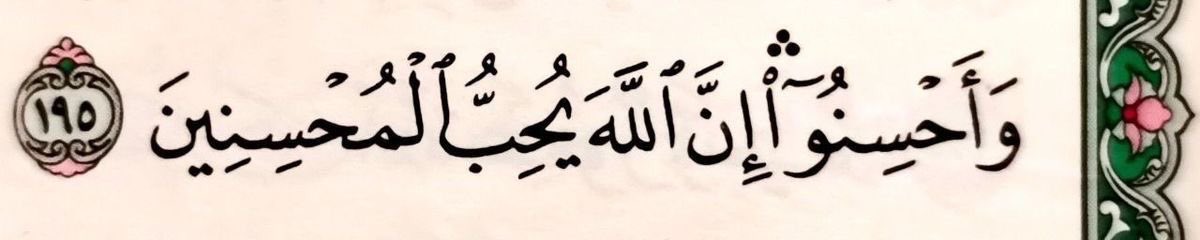 وَأَحْسِنُوٓا۟ ۛ إِنَّ ٱللَّهَ يُحِبُّ ٱلْمُحْسِنِينَ ١٩٥